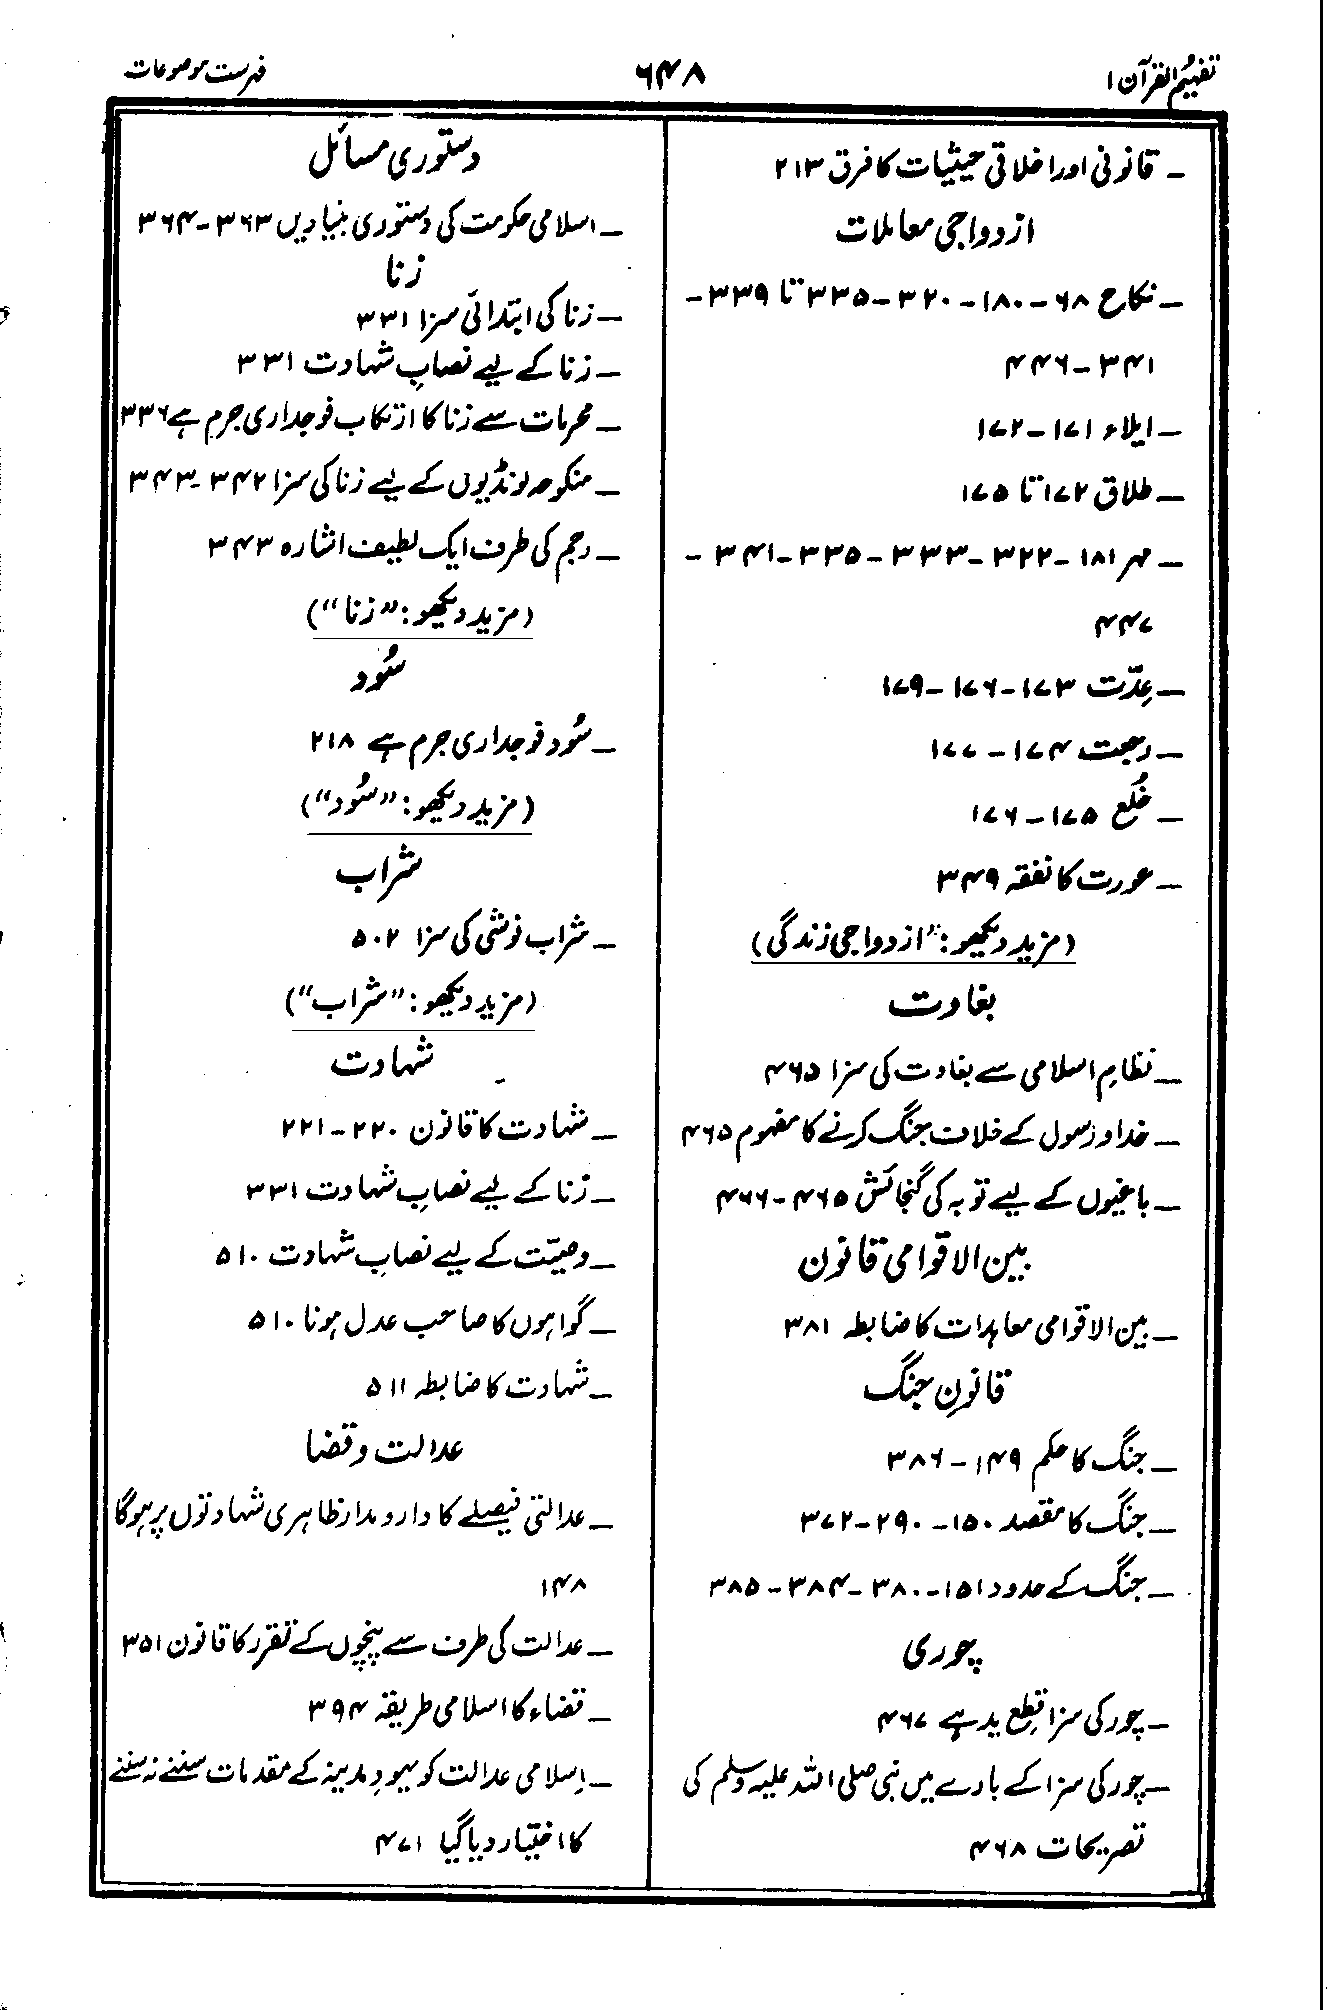 تفہیم القرآن ۱
۶۴۸
فہرست موضوعات
۔ قانونی اور اخلاقی حیثیات کا فرق ۲۱۳
ازدواجی معاملات
۔ نکاح ۶۸ - ۱۸۰ - ۳۲۰ - ۳۳۵ تا ۳۳۹ -
۳۴۱ - ۴۴۶
۔ ایلاء ۱۷۱ - ۱۷۲
۔ طلاق ۱۷۲ تا ۱۷۵
۔ مہر ۱۸۱ - ۳۲۲ - ۳۳۳ - ۳۳۵ - ۳۴۱ -
۴۴۷
۔ عِدّت ۱۷۳ - ۱۷۶ - ۱۷۹
۔ رجعت ۱۷۴ - ۱۷۷
۔ خُلع ۱۷۵ - ۱۷۶
۔ عورت کا نفقہ ۳۴۹
(مزید دیکھو: ”ازدواجی زندگی)
بغاوت
۔ نظامِ اسلامی سے بغاوت کی سزا ۴۶۵
۔ خدا و رسول کے خلاف جنگ کرنے کا مفہوم ۴۶۵
۔ باغیوں کے لیے توبہ کی گنجائش ۴۶۵ - ۴۶۶
بین الاقوامی قانون
۔ بین الاقوامی معاہدات کا ضابطہ ۳۸۱
قانونِ جنگ
۔ جنگ کا حکم ۱۴۹ - ۳۸۶
۔ جنگ کا مقصد ۱۵۰ - ۲۹۰ - ۳۷۲
۔ جنگ کے حدود ۱۵۱ - ۳۸۰ - ۳۸۴ - ۳۸۵
چوری
۔ چور کی سزا قطع ید ہے ۴۶۷
۔ چور کی سزا کے بارے میں نبی صلی اللہ علیہ وسلم کی
تصریحات ۴۶۸
دستوری مسائل
۔ اسلامی حکومت کی دستوری بنیادیں ۳۶۳ - ۳۶۴
زنا
۔ زنا کی ابتدائی سزا ۳۳۱
۔ زنا کے لیے نصابِ شہادت ۳۳۱
۔ محرمات سے زنا کا ارتکاب فوجداری جرم ہے ۳۳۶
۔ منکوحہ لونڈیوں کے لیے زنا کی سزا ۳۴۲ - ۳۴۳
۔ رجم کی طرف ایک لطیف اشارہ ۳۴۳
(مزید دیکھو: ”زنا“)
سُود
۔ سُود فوجداری جرم ہے ۲۱۸
(مزید دیکھو: ”سُود“)
شراب
۔ شراب نوشی کی سزا ۵۰۲
(مزید دیکھو: ”شراب“)
شہادت
۔ شہادت کا قانون ۲۲۰ - ۲۲۱
۔ زنا کے لیے نصابِ شہادت ۳۳۱
۔ وصیّت کے لیے نصابِ شہادت ۵۱۰
۔ گواہوں کا صاحب عدل ہونا ۵۱۰
۔ شہادت کا ضابطہ ۵۱۱
عدالت و قضا
۔ عدالتی فیصلے کا دارومدار ظاہری شہادتوں پر ہوگا
۱۴۸
۔ عدالت کی طرف سے پنچوں کے تقرر کا قانون ۳۵۱
۔ قضاء کا اسلامی طریقہ ۳۹۴
۔ اِسلامی عدالت کو یہودِ مدینہ کے مقدمات سننے نہ سننے
کا اختیار دیا گیا ۴۷۱